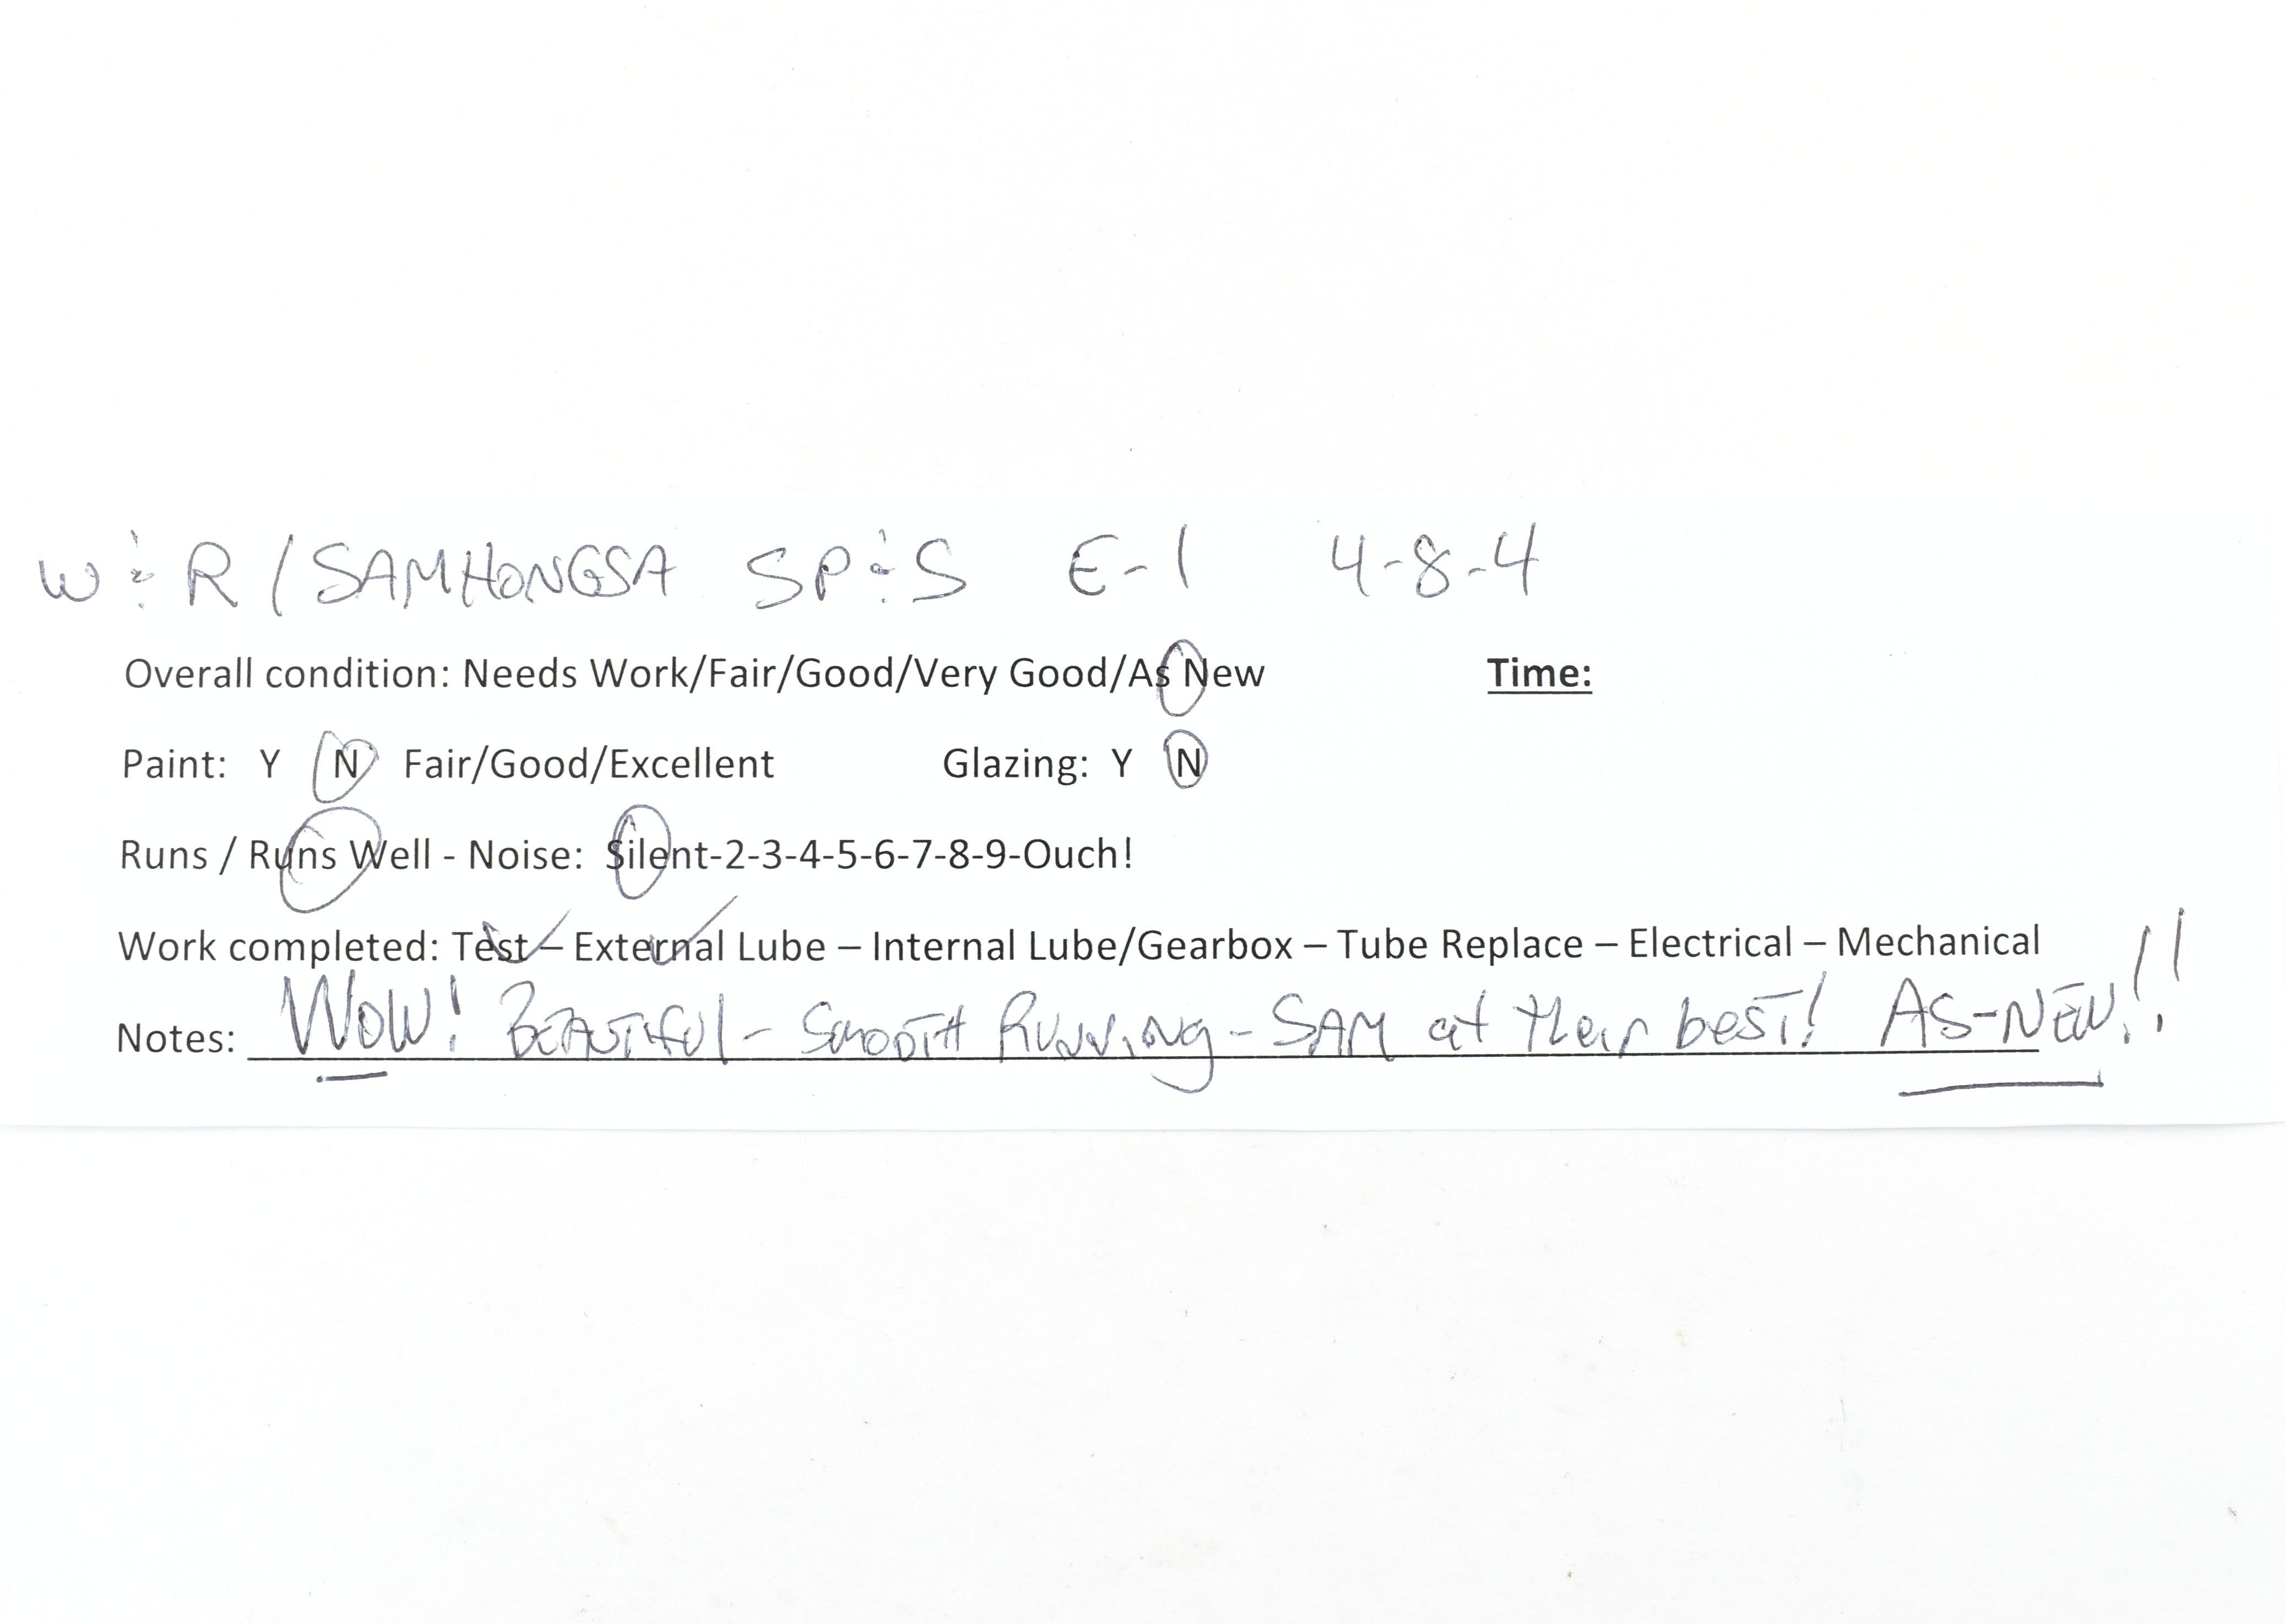 W & R / SAMHONGSA SP&S E-1 4-8-4
Overall condition: Needs Work/Fair/Good/Very Good/As New Time:
Paint: Y N Fair/Good/Excellent Glazing: Y N
Runs / Runs Well - Noise: Silent-2-3-4-5-6-7-8-9-Ouch!
Work completed: Test – External Lube – Internal Lube/Gearbox – Tube Replace – Electrical – Mechanical
Notes: WOW! BEAUTIFUL - SMOOTH RUNNINg - SAM at their best! AS-NEW!!